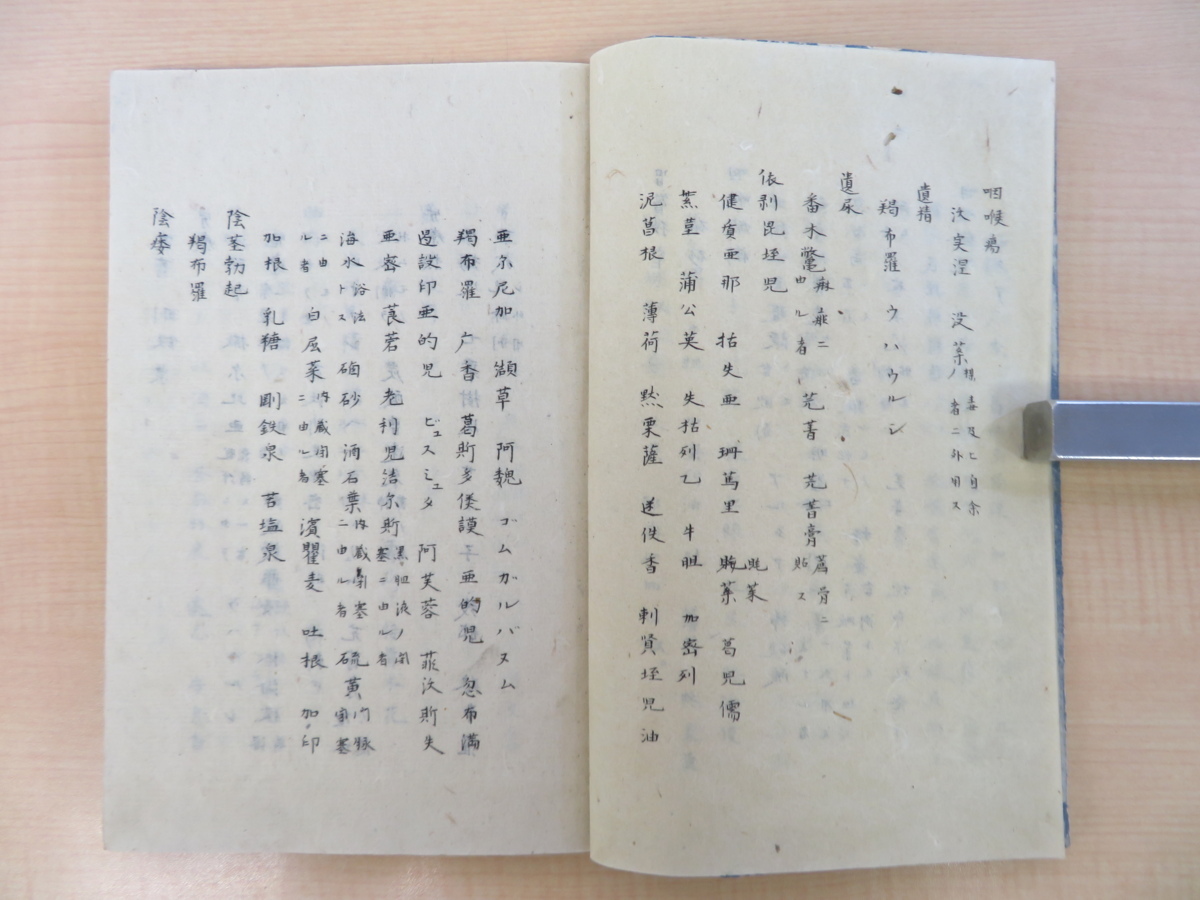 咽喉瘍
没薬ノ者ニ外用ス
遺精
羯布羅 ウハウルシ
遺尿
番木鼈 麻痺ニ由ル者 芫菁 芫菁膏 薦骨ニ貼ス
依剥昆垤児
健質亜那 括失亜 珊篤里 葛児儒
蕉菫 蒲公英 失牯列乙 牛胆 加密列
泥菖根 薄荷 黙栗薩 迷佚香 刺賢垤児油
亜尓尼加 纈草 阿魏 ゴムガルバヌム
羯布羅 广香 葛斯多僂謨 亜的児 忽布満
過設印亜的児 ビュスミュタ 阿芙蓉 菲沃斯失
亜密 莨菪 老利児結尓斯 黒胆液ノ閉塞ニ由ル者
海水 浴法トス 硇砂 酒石葉 内蔵閉塞ニ由ル者 硫黄 門脈
ニ由ル者 白屈菜 内蔵閉塞ニ由ル者 濱瞿麦 吐根 加印
加根 乳糖 剛鉄泉 苦塩泉
陰茎勃起
羯布羅
陰痿